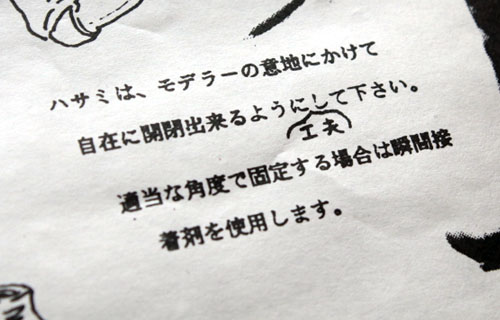 ハサミは、モデラーの意地にかけて
自在に開閉出来るようにして下さい。
工夫
適当な角度で固定する場合は瞬間接
着剤を使用します。